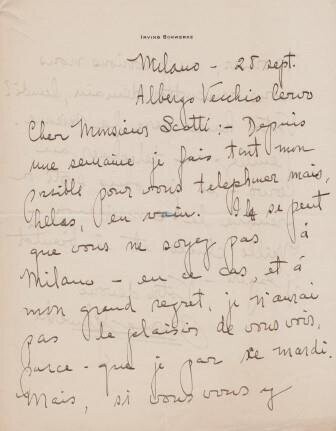 IRVING SCHWERKÉ
Milano - 28 sept.
Albergo Vecchio Cervo
Cher Monsieur Scotti :- Depuis
une semaine je fais tout mon
possible pour vous telephoner mais,
helas, en vain. Il se peut
que vous ne soyez pas à
Milano - en ce cas, et à
mon grand regret, je n'aurai
pas le plaisir de vous voir,
parce-que je par ce mardi.
Mais, si vous vous y